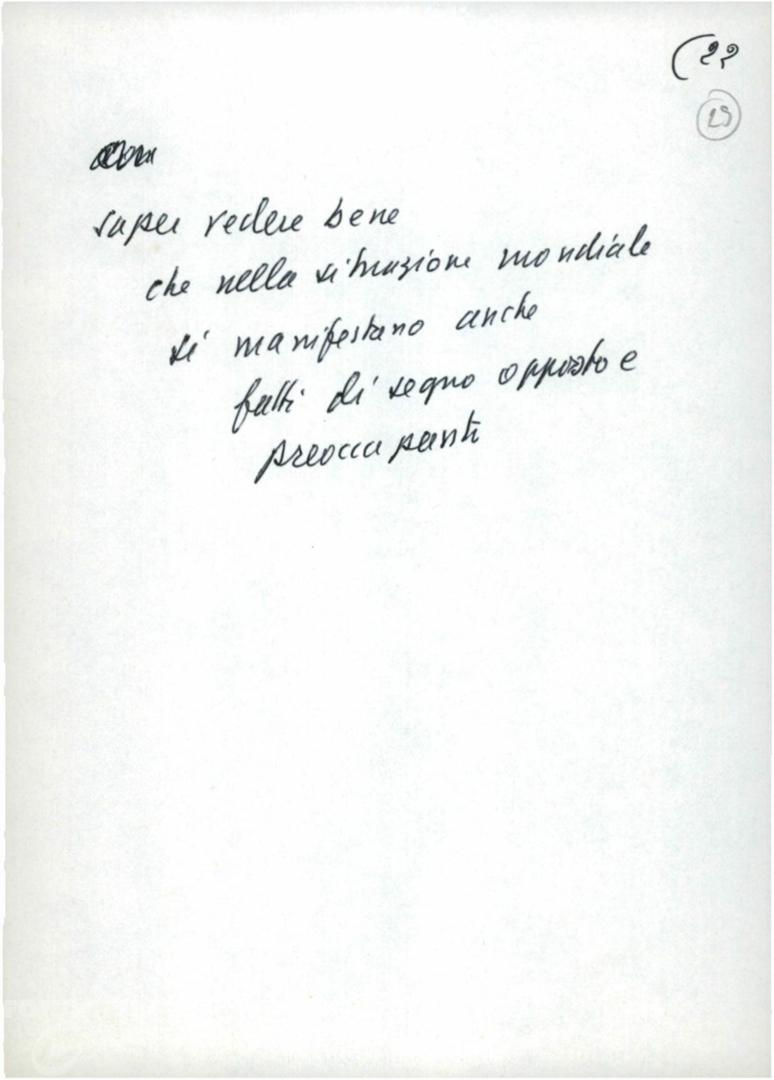 (22
25
saper vedere bene
che nella situazione mondiale
si manifestano anche
fatti di segno opposto e
preoccupanti